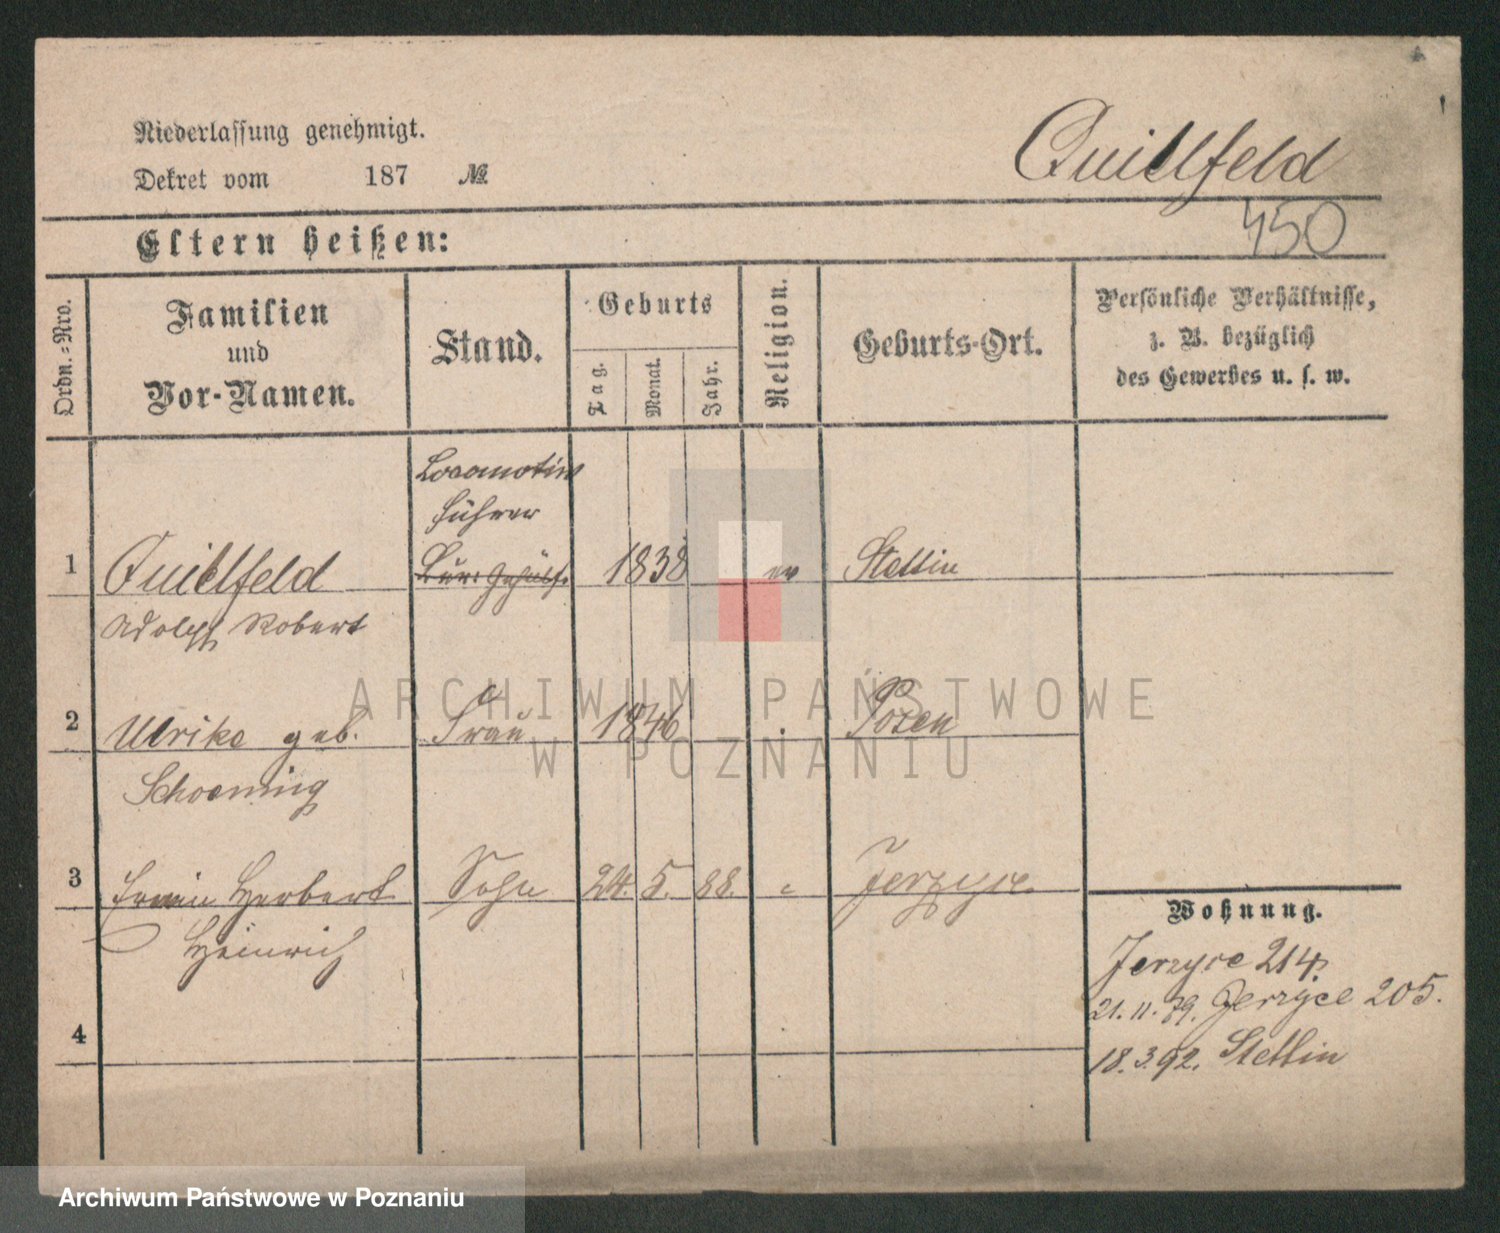 Niederlassung genehmigt.
Dekret vom 187 №
Quillfeld
450
Eltern heißen:
Ordn.-Nro.
Familien
und
Vor-Namen.
Stand.
Geburts
Tag.
Monat.
Jahr.
Religion.
Geburts-Ort.
Persönliche Verhältnisse,
z. B. bezüglich
des Gewerbes u. s. w.
Locomotiv
führer
1 Quillfeld Bür. Gehülf. 1838 ev Stettin
Adolph Robert
2 Ulrike geb. Frau 1846 Posen
Schoening
3 Erwin Herbert Sohn 24. 5. 88. Jerzyce
Heinrich
4
Wohnung.
Jerzyce 214.
21. 11. 79. Jerzyce 205.
18. 3. 92. Stettin
ARCHIWUM PAŃSTWOWE
W POZNANIU
Archiwum Państwowe w Poznaniu